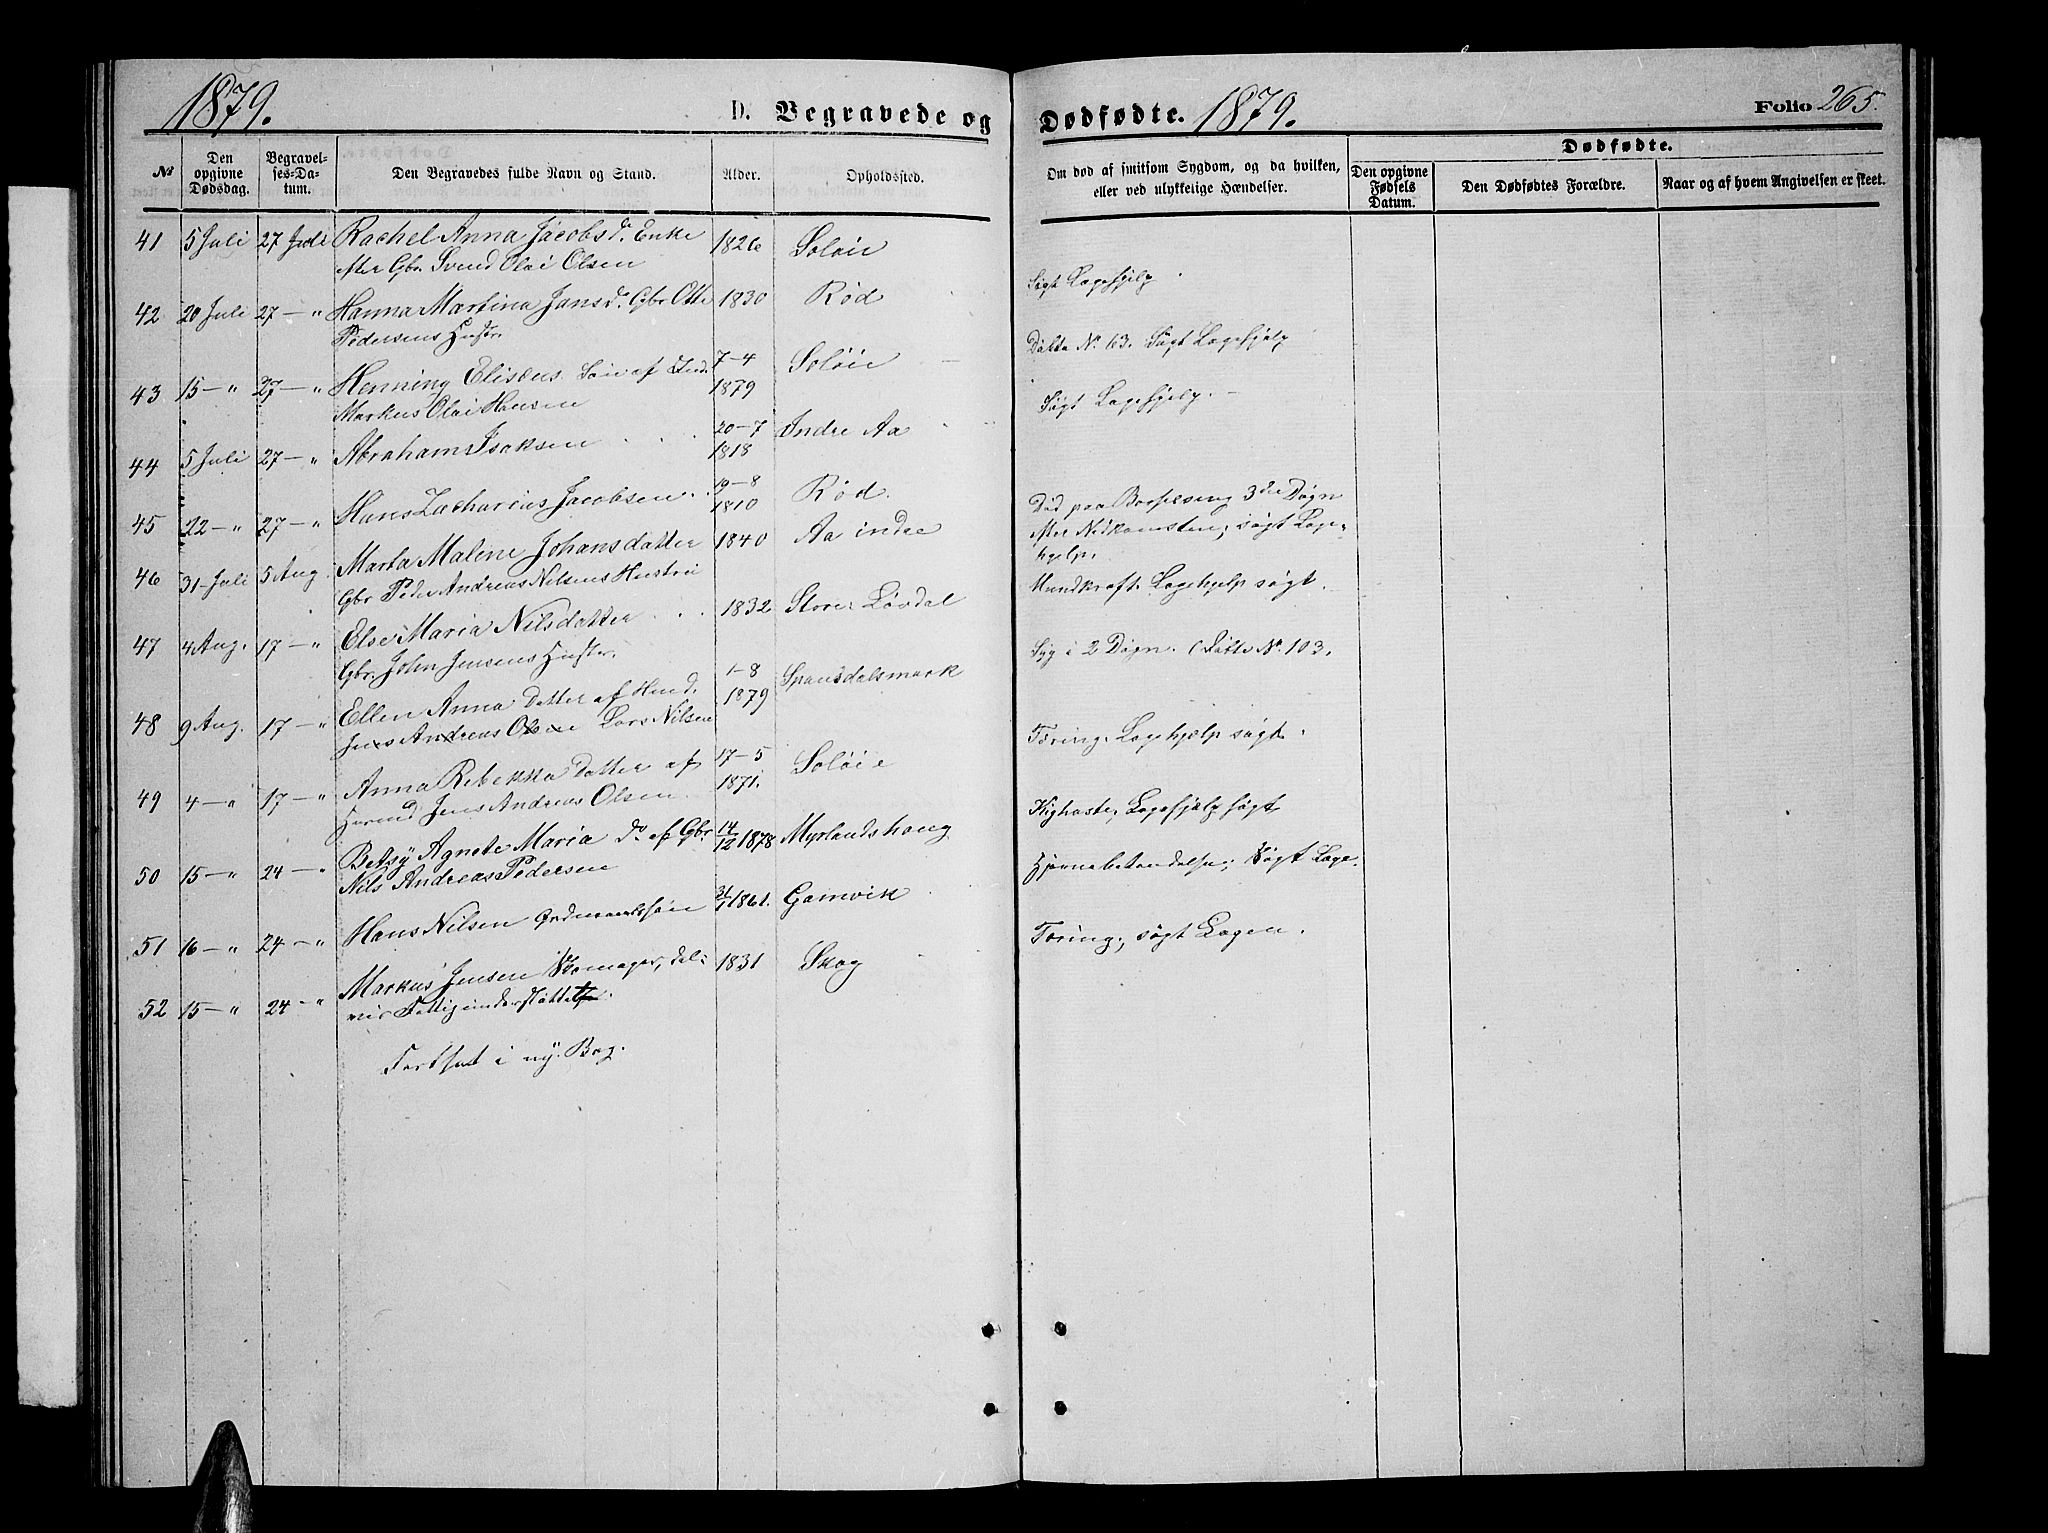 1879.
D. Begravede og
Dødfødte. 1879.
Folio 265.
№
Den opgivne Dødsdag.
Begravelses-Datum.
Den Begravedes fulde Navn og Stand.
Alder.
Opholdssted.
Om død af smitsom Sygdom, og da hvilken,
eller ved ulykkelige Hændelser.
Dødfødte.
Den opgivne Fødsels Datum.
Den Dødfødtes Forældre.
Naar og af hvem Angivelsen er skeet.
41 5 Juli 27 Juli Rachel Anna Jacobsd. Enke 1826 Soløie
efter Gbr. Svend Olai Olsen
Søgt Lægehjelp
42 20 Juli 27 — " Hanna Martina Jansd. Gbr Otte 1830 Rød
Pedersens Hustr.
No. 63. Søgt Lægehjelp
43 15 — " 27 — " Henning Elisæus Søn af Ind. 7-4 1879 Soløie
Markus Olai Hansen
Søgt Lægehjelp.
44 5 Juli 27 — " Abraham Isaksen 20-7 1818 Indre Aa
45 22 — " 27 — " Hans Zacharius Jacobsen 19-8 1810 Rød.
Død paa Barselseng 3die Døgn
efter Nedkomsten; søgt Læge-
hjelp.
46 31 Juli 5 Aug. Marta Malene Johansdatter 1840 Aa indre
Gbr Peder Andreas Nilsens Hustru
Mundkræft. Lægehjelp søgt.
47 4 Aug. 17 — " Else Maria Nilsdatter 1832 Store Løvdal
Gbr. John Jensens Hustr.
Syg i 2 Døgn. No. 103.
48 9 Aug. 17 — " Ellen Anna Datter af Huusd. 1-8 1879 Spansdalsmark
Jens Andreas Olsen Lars Nilsen
Tæring. Lægehjælp søgt.
49 4 — " 17 — " Anna Rebekka Datter af 17-5 1871. Soløie
Huusmd Jens Andreas Olsen
Kighoste; Lægehjelp søgt
50 15 — " 24 — " Betzy Agnete Maria do af Gbr 14/12 1878 Myrlandshaug
Nils Andreas Pedersen
Hjernebetændelse; Søgt Læge.
51 16 — " 24 — " Hans Nilsen 31/1 1861. Gamvik
Tæring; søgt Lægen.
52 15 — " 24 — " Markus Jensen Skomager, del- 1831 Skog
vis Fattigunderstøttet.
Fortsat i ny Bog.